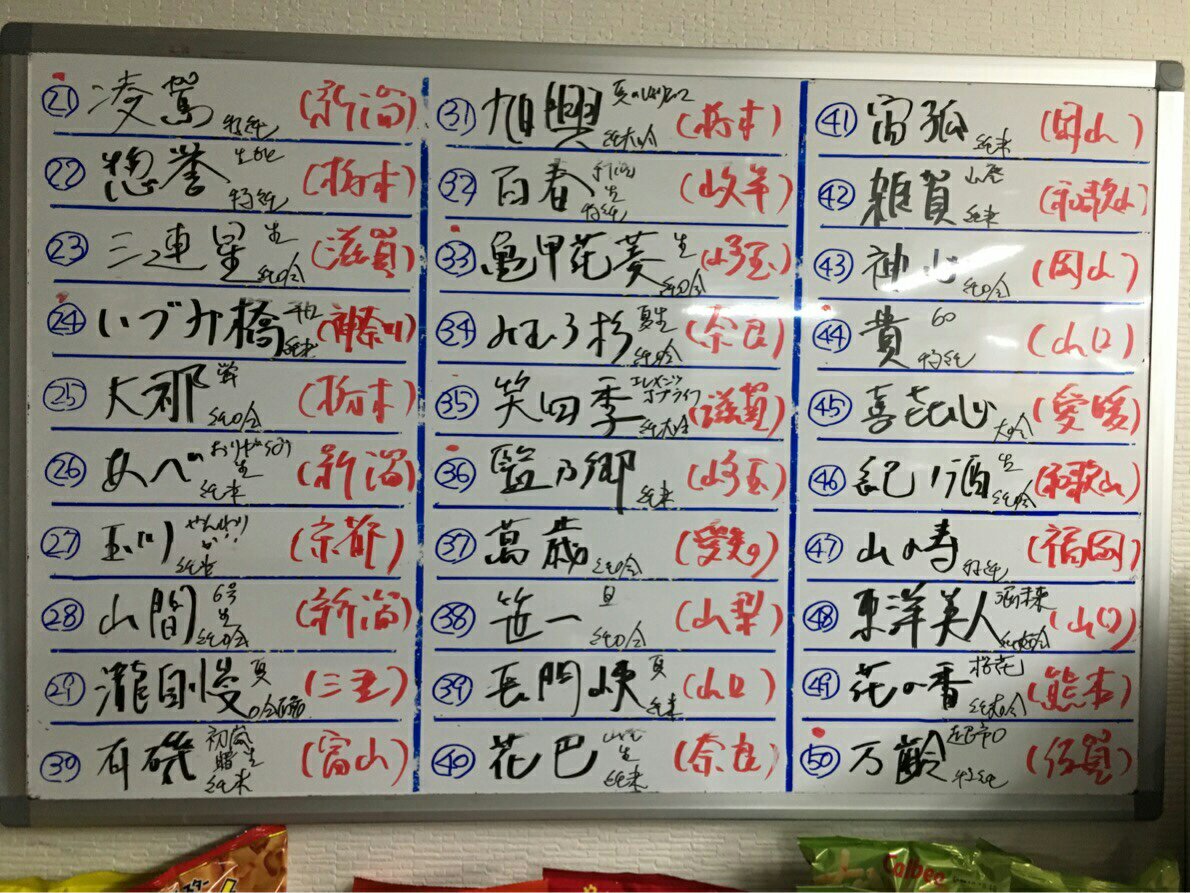 ㉑ 凌駕 特純 (新潟)
㉒ 惣誉 生酛 特純 (栃木)
㉓ 三連星 生 純吟 (滋賀)
㉔ いづみ橋 純米 (神奈川)
㉕ 大那 純吟 (栃木)
㉖ あべ おりがらみ 生 純米 (新潟)
㉗ 玉川 純米 (京都)
㉘ 山間 6号 生 純吟 (新潟)
㉙ 瀧自慢 夏 (三重)
㉚ 有磯 初嵐 曙 生 純米 (富山)
㉛ 旭興 純大吟 (栃木)
㉜ 百春 生 特純 (岐阜)
㉝ 亀甲花菱 生 純吟 (埼玉)
㉞ みむろ杉 夏生 純吟 (奈良)
㉟ 笑四季 純大吟 (滋賀)
㊱ 藍の郷 純米 (埼玉)
㊲ 萬歳 純吟 (愛知)
㊳ 笹一 旦 純吟 (山梨)
㊴ 長門峡 夏 純米 (山口)
㊵ 花巴 山廃 生 純米 (奈良)
㊶ 宙狐 純米 (岡山)
㊷ 雑賀 山廃 純米 (和歌山)
㊸ 神心 純吟 (岡山)
㊹ 貴 60 特純 (山口)
㊺ 喜七心 大吟 (愛媛)
㊻ 紀ノ酒 生 純吟 (和歌山)
㊼ 山の寿 特純 (福岡)
㊽ 東洋美人 純大吟 (山口)
㊾ 花の香 桜花 純大吟 (熊本)
㊿ 万齢 超辛口 特純 (佐賀)
Calbee